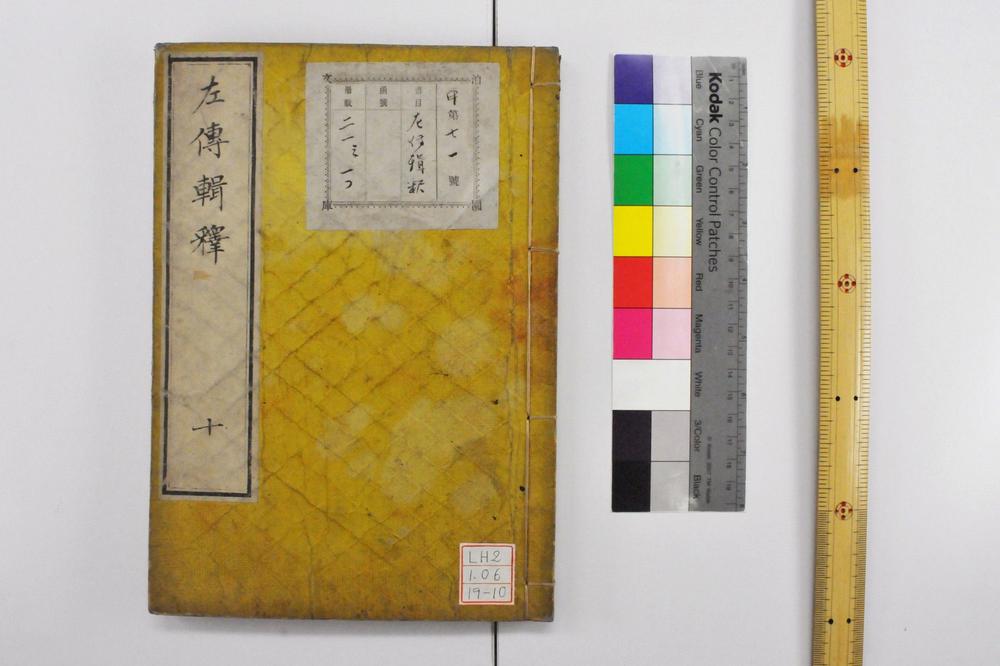 左傳輯釋
十
泊園文庫
甲第七一號
書目
左傳輯釈
函號
冊数
二一ミ
LH2
1.06
19-10
Kodak Color Control Patches
Blue
Cyan
Green
Yellow
Red
Magenta
White
3/Color
Black